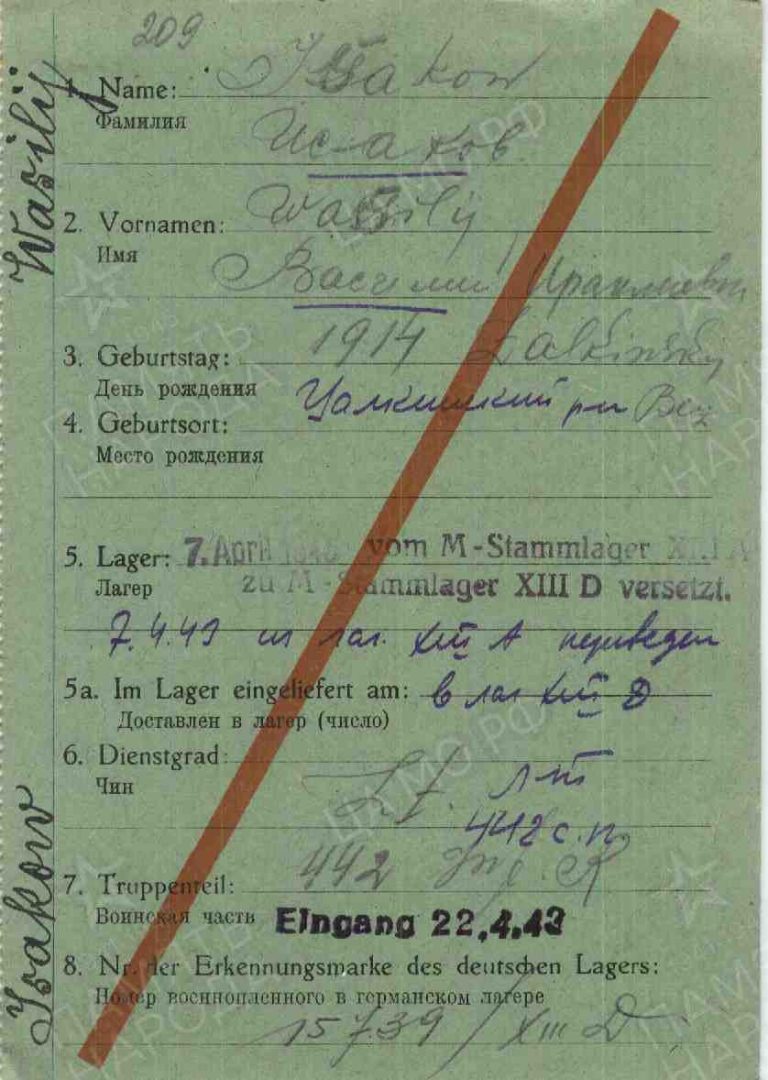 209
1. Name: Isakow
Фамилия
Исаков
2. Vornamen: Wassilij
Имя
Василий Ираклиевич
3. Geburtstag: 1914 Zalkinsky
День рождения Цалкинский р-н
4. Geburtsort:
Место рождения
5. Lager: 7. April 1943 vom M-Stammlager XIII A
Лагер zu M-Stammlager XIII D versetzt.
7.4.43 из лаг. XIII А переведен
5a. Im Lager eingeliefert am: в лаг XIII D
Доставлен в лагер (число)
6. Dienstgrad:
Чин Lt. л-т
442 с.п.
7. Truppenteil: 442
Воинская часть Eingang 22.4.43
8. Nr. der Erkennungsmarke des deutschen Lagers:
Номер военнопленного в германском лагере
15739 / XIII D
Wasilij
Isakow
ПАМЯТЬ НАРОДА
ЦАМО РФ